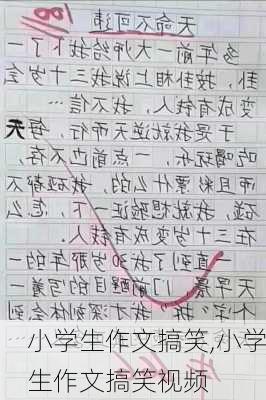 天命不可违
多年前一大师给我卜了一
卦，按卦相上说我三十岁会
变成有钱人，我不信…
于是我就逆天而行，每天
吃喝玩乐，一点前也不存，
而且彩票什么的，我碰都不
碰，我想就验证一下，怎么
在三十岁变成有钱人。
一直到了我30岁那年的一
天早晨，门前醒目的写着一
个"拆"我才深刻体会到
小学生作文搞笑,小学
生作文搞笑视频